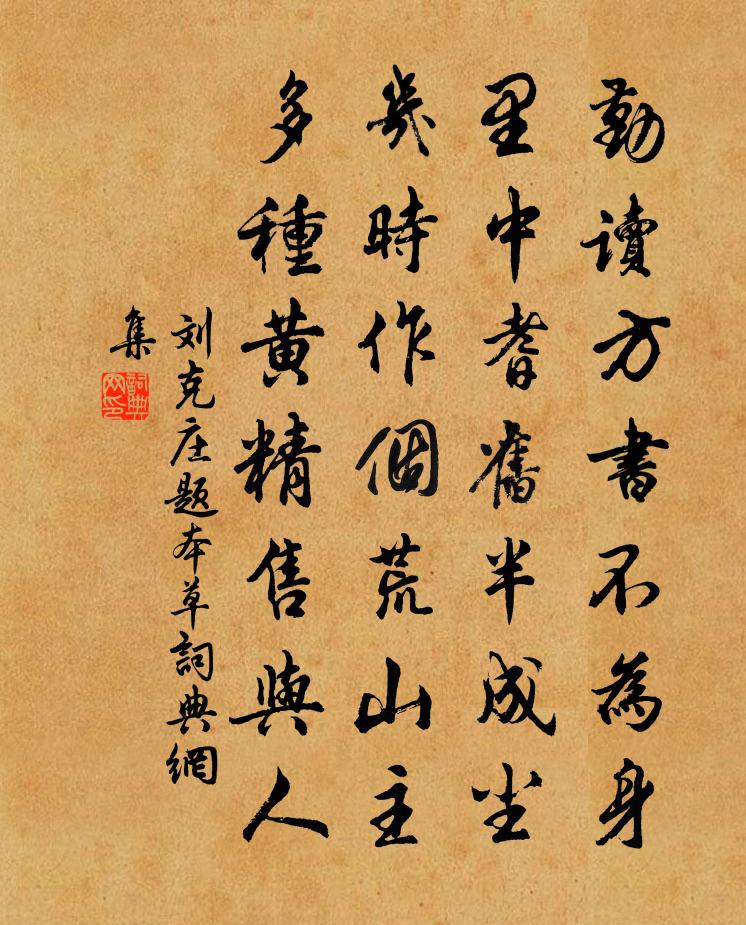 勤讀方書不為身
里中耆舊半成尘
幾時作個荒山主
多種黃精售與人
刘克庄题本草詞典網
集
詞典網印